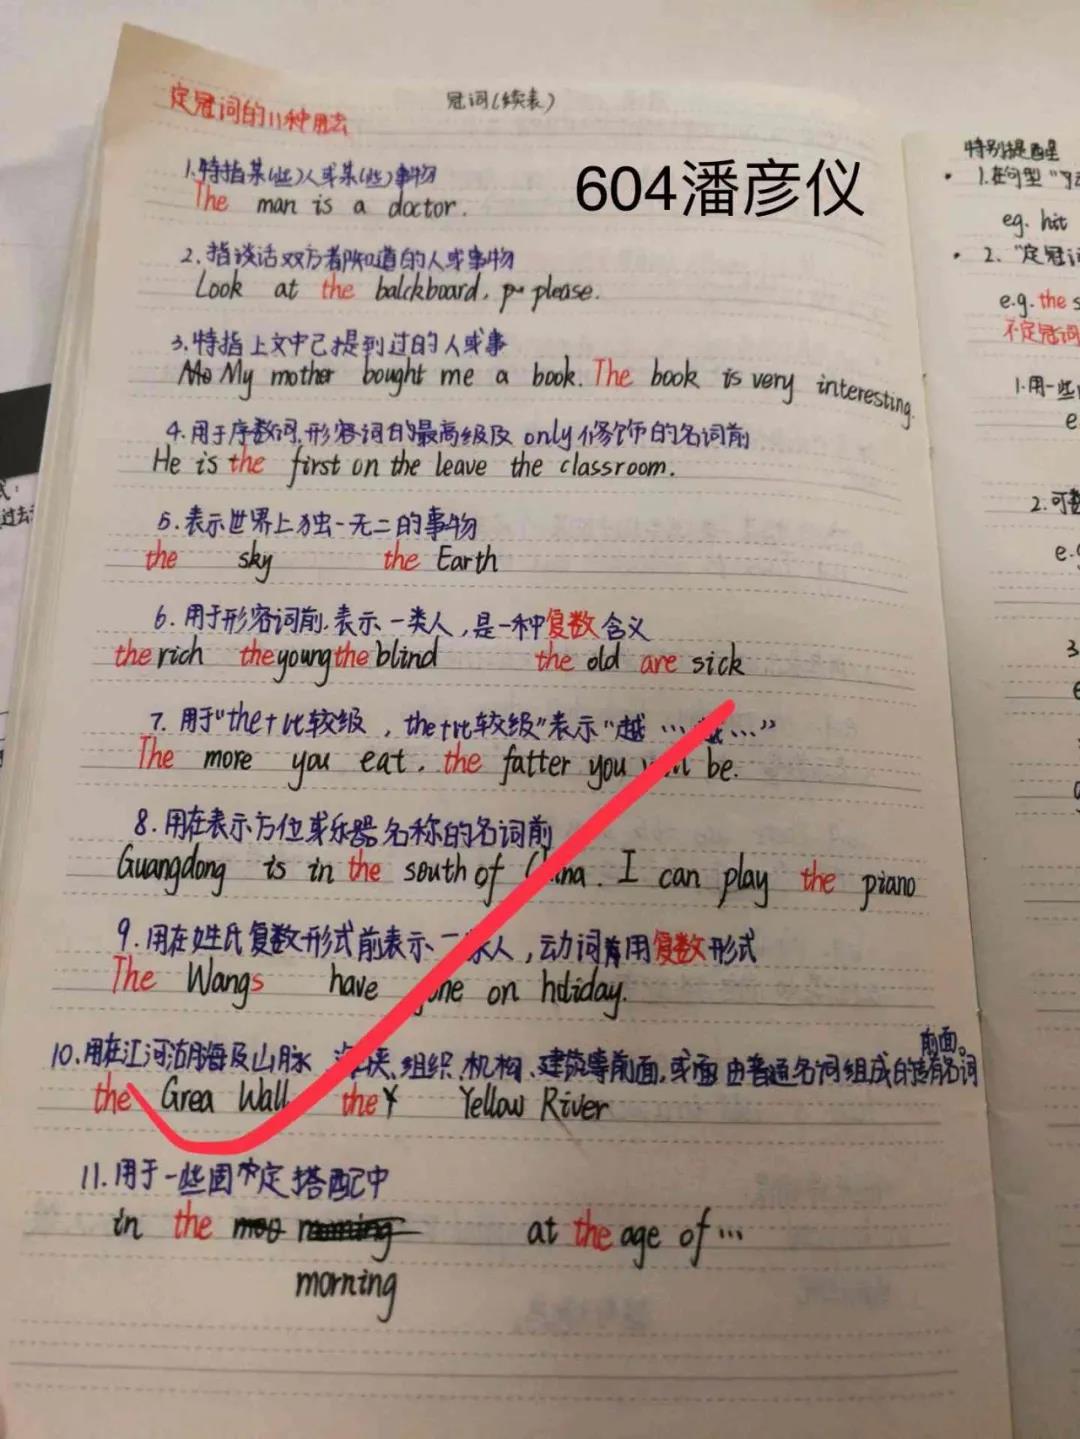 冠词(续表)
定冠词的11种用法
604潘彦仪
1.特指某(些)人或某(些)事物
The man is a doctor.
2.指谈话双方都知道的人或事物
Look at the balckboard, please.
3.特指上文中已提到过的人或事
My mother bought me a book. The book is very interesting.
4.用于序数词,形容词的最高级及only修饰的名词前
He is the first on the leave the classroom.
5.表示世界上独一无二的事物
the sky the Earth
6.用于形容词前,表示一类人,是一种复数含义
the rich the young the blind the old are sick
7.用于"the+比较级,the+比较级"表示"越…越…"
The more you eat, the fatter you will be.
8.用在表示方位或乐器名称的名词前
Guangdong is in the south of China. I can play the piano
9.用在姓氏复数形式前表示一家人,动词用复数形式
The Wangs have gone on holiday.
10.用在江河湖海及山脉、海峡、组织、机构、建筑等前面,或由普通名词组成的专有名词前面。
the Grea Wall the Yellow River
11.用于一些固定搭配中
in the morning at the age of…
特别提醒
1.在句型"
eg. hit
2."定冠词
e.g. the s
不定冠词
1.用一些
2.可数
e.g
3